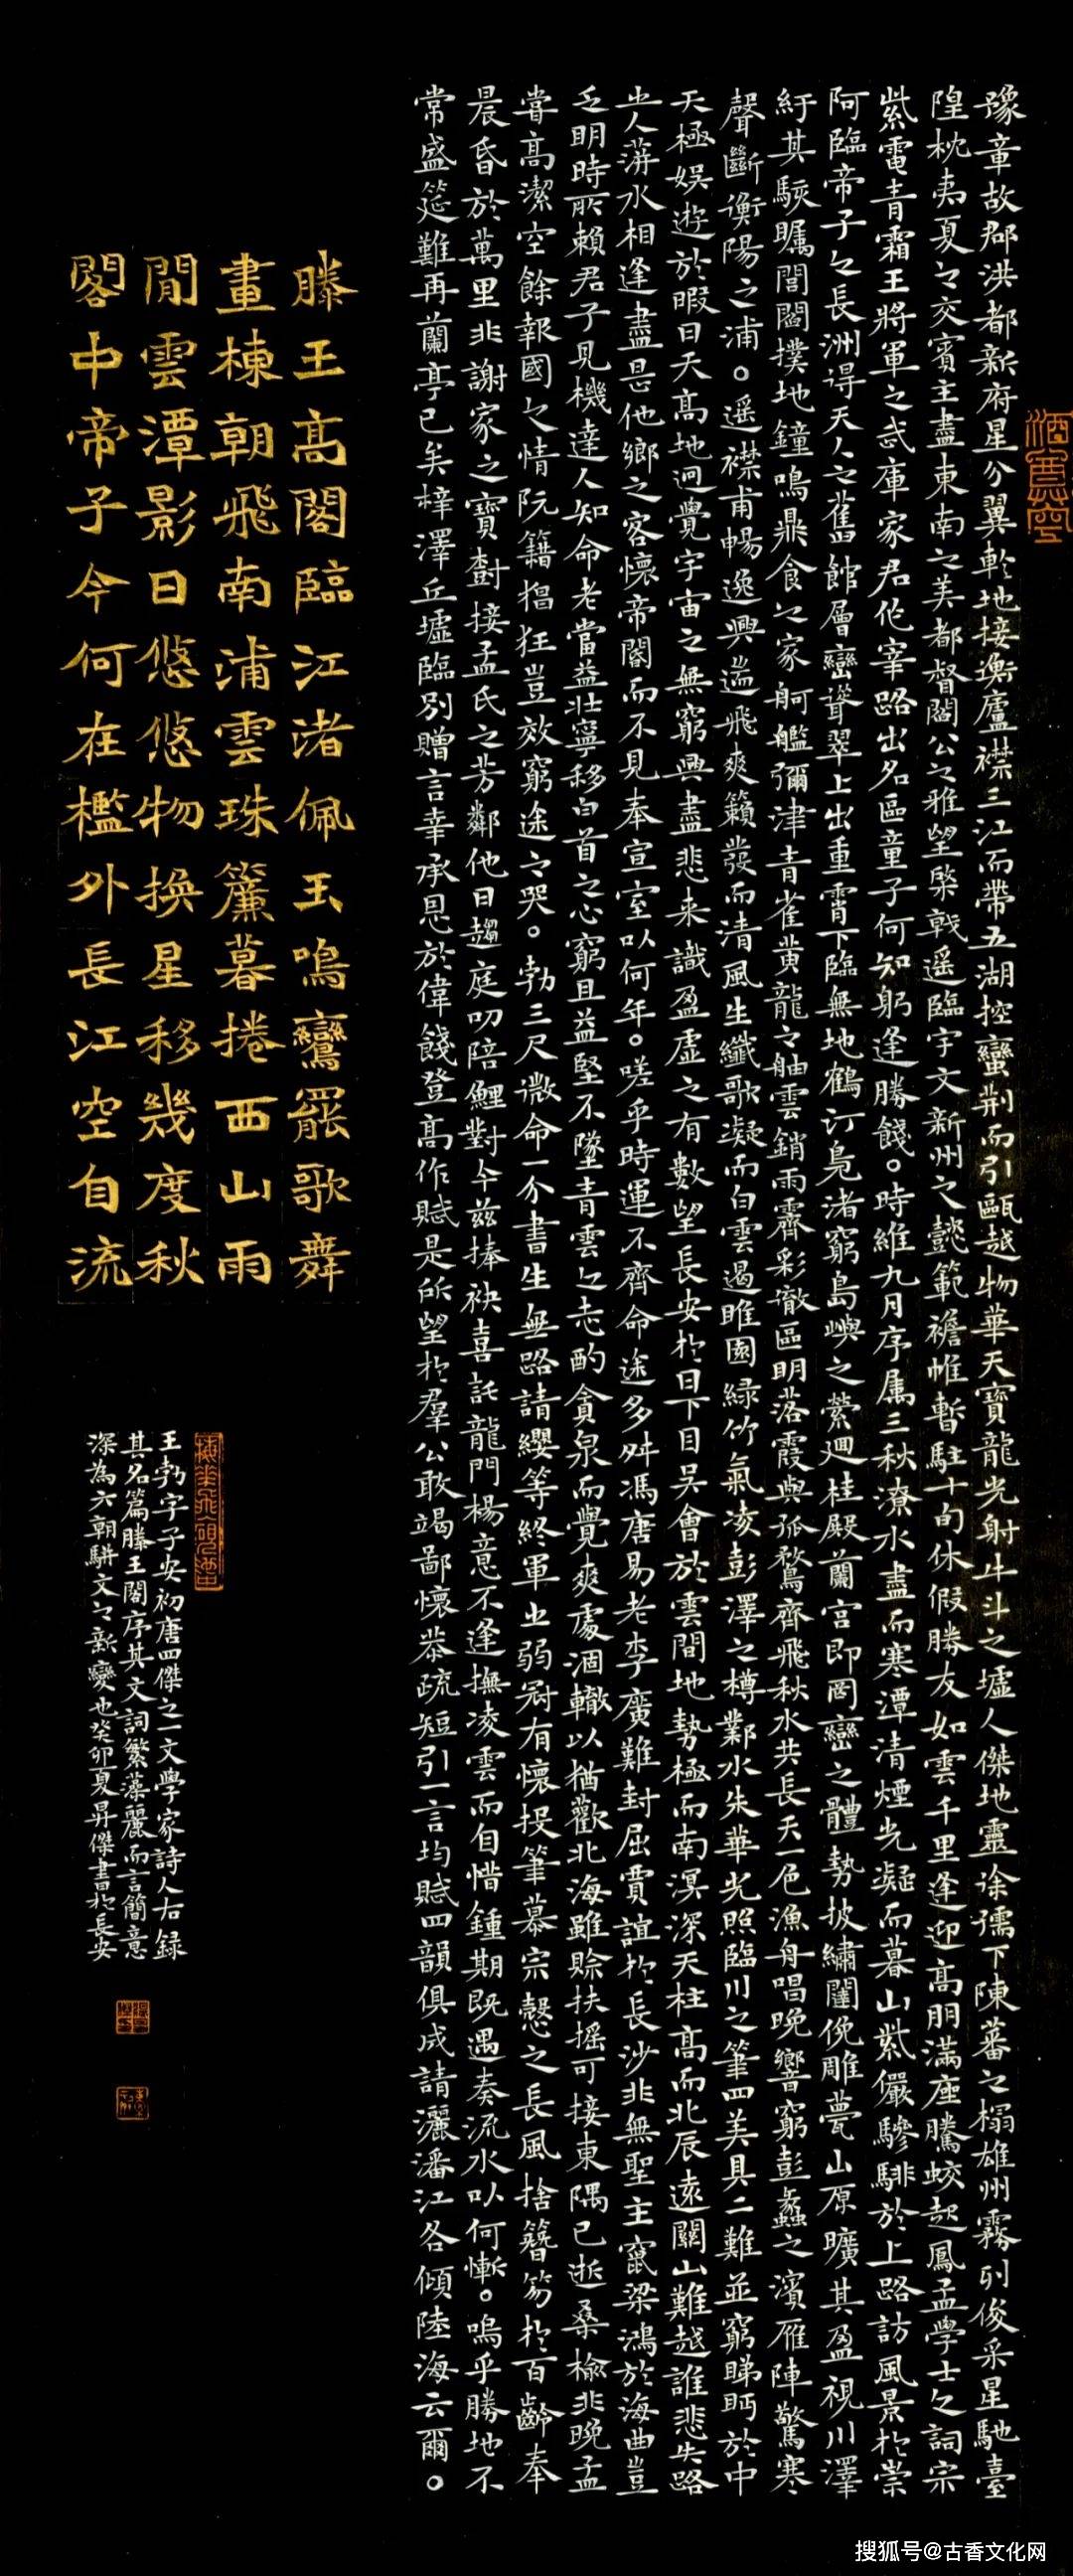 豫章故郡洪都新府星分翼軫地接衡廬襟三江而帶五湖控蠻荊而引甌越物華天寶龍光射牛斗之墟人傑地靈徐孺下陳蕃之榻雄州霧列俊采星馳臺
隍枕夷夏之交賓主盡東南之美都督閻公之雅望棨戟遥臨宇文新州之懿範襜帷暫駐十旬休假勝友如雲千里逢迎高朋滿座騰蛟起鳳孟學士之詞宗
紫電青霜王將軍之武庫家君作宰路出名區童子何知躬逢勝餞。時維九月序属三秋潦水盡而寒潭清煙光凝而暮山紫儼驂騑於上路訪風景於崇
阿臨帝子之長洲得天人之舊館層巒聳翠上出重霄下臨無地鶴汀鳧渚窮島嶼之縈迴桂殿蘭宫即岡巒之體勢披繡闥俛雕甍山原曠其盈視川澤
紆其駭矚閭閻撲地鐘鳴鼎食之家舸艦彌津青雀黄龍之舳雲銷雨霽彩徹區明落霞與孤鶩齊飛秋水共長天一色漁舟唱晚響窮彭蠡之濱雁陣驚寒
聲斷衡陽之浦。遥襟甫暢逸興遄飛爽籟發而清風生纖歌凝而白雲遏睢園緑竹氣凌彭澤之樽鄴水朱華光照臨川之筆四美具二難並窮睇眄於中
天極娛遊於暇日天高地迥覺宇宙之無窮興盡悲来識盈虚之有數望長安於日下目吳會於雲間地勢極而南溟深天柱高而北辰遠關山難越誰悲失路
之人萍水相逢盡是他鄉之客懷帝閽而不見奉宣室以何年。嗟乎時運不齊命途多舛馮唐易老李廣難封屈賈誼於長沙非無聖主竄梁鴻於海曲豈
乏明時所賴君子見機達人知命老當益壯寧移白首之心窮且益堅不墜青雲之志酌貪泉而覺爽處涸轍以猶歡北海雖賒扶摇可接東隅已逝桑榆非晚孟
嘗高潔空餘報國之情阮籍猖狂豈效窮途之哭。勃三尺微命一介書生無路請纓等終軍之弱冠有懷投筆慕宗慤之長風捨簪笏於百齡奉
晨昏於萬里非謝家之寶樹接孟氏之芳鄰他日趨庭叨陪鯉對今兹捧袂喜託龍門楊意不逢撫凌雲而自惜鍾期既遇奏流水以何慚。嗚乎勝地不
常盛筵難再蘭亭已矣梓澤丘墟臨别贈言幸承恩於偉餞登高作賦是所望於羣公敢竭鄙懷恭疏短引一言均賦四韻俱成請灑潘江各傾陸海云爾。
滕王高閣臨江渚佩玉鳴鸞罷歌舞
畫棟朝飛南浦雲珠簾暮捲西山雨
閒雲潭影日悠悠物换星移幾度秋
閣中帝子今何在檻外長江空自流
王勃字子安初唐四傑之一文學家詩人右録
其名篇滕王閣序其文詞繁藻麗而言簡意
深為六朝駢文之新變也癸卯夏昇傑書於長安
搜狐号@古香文化网